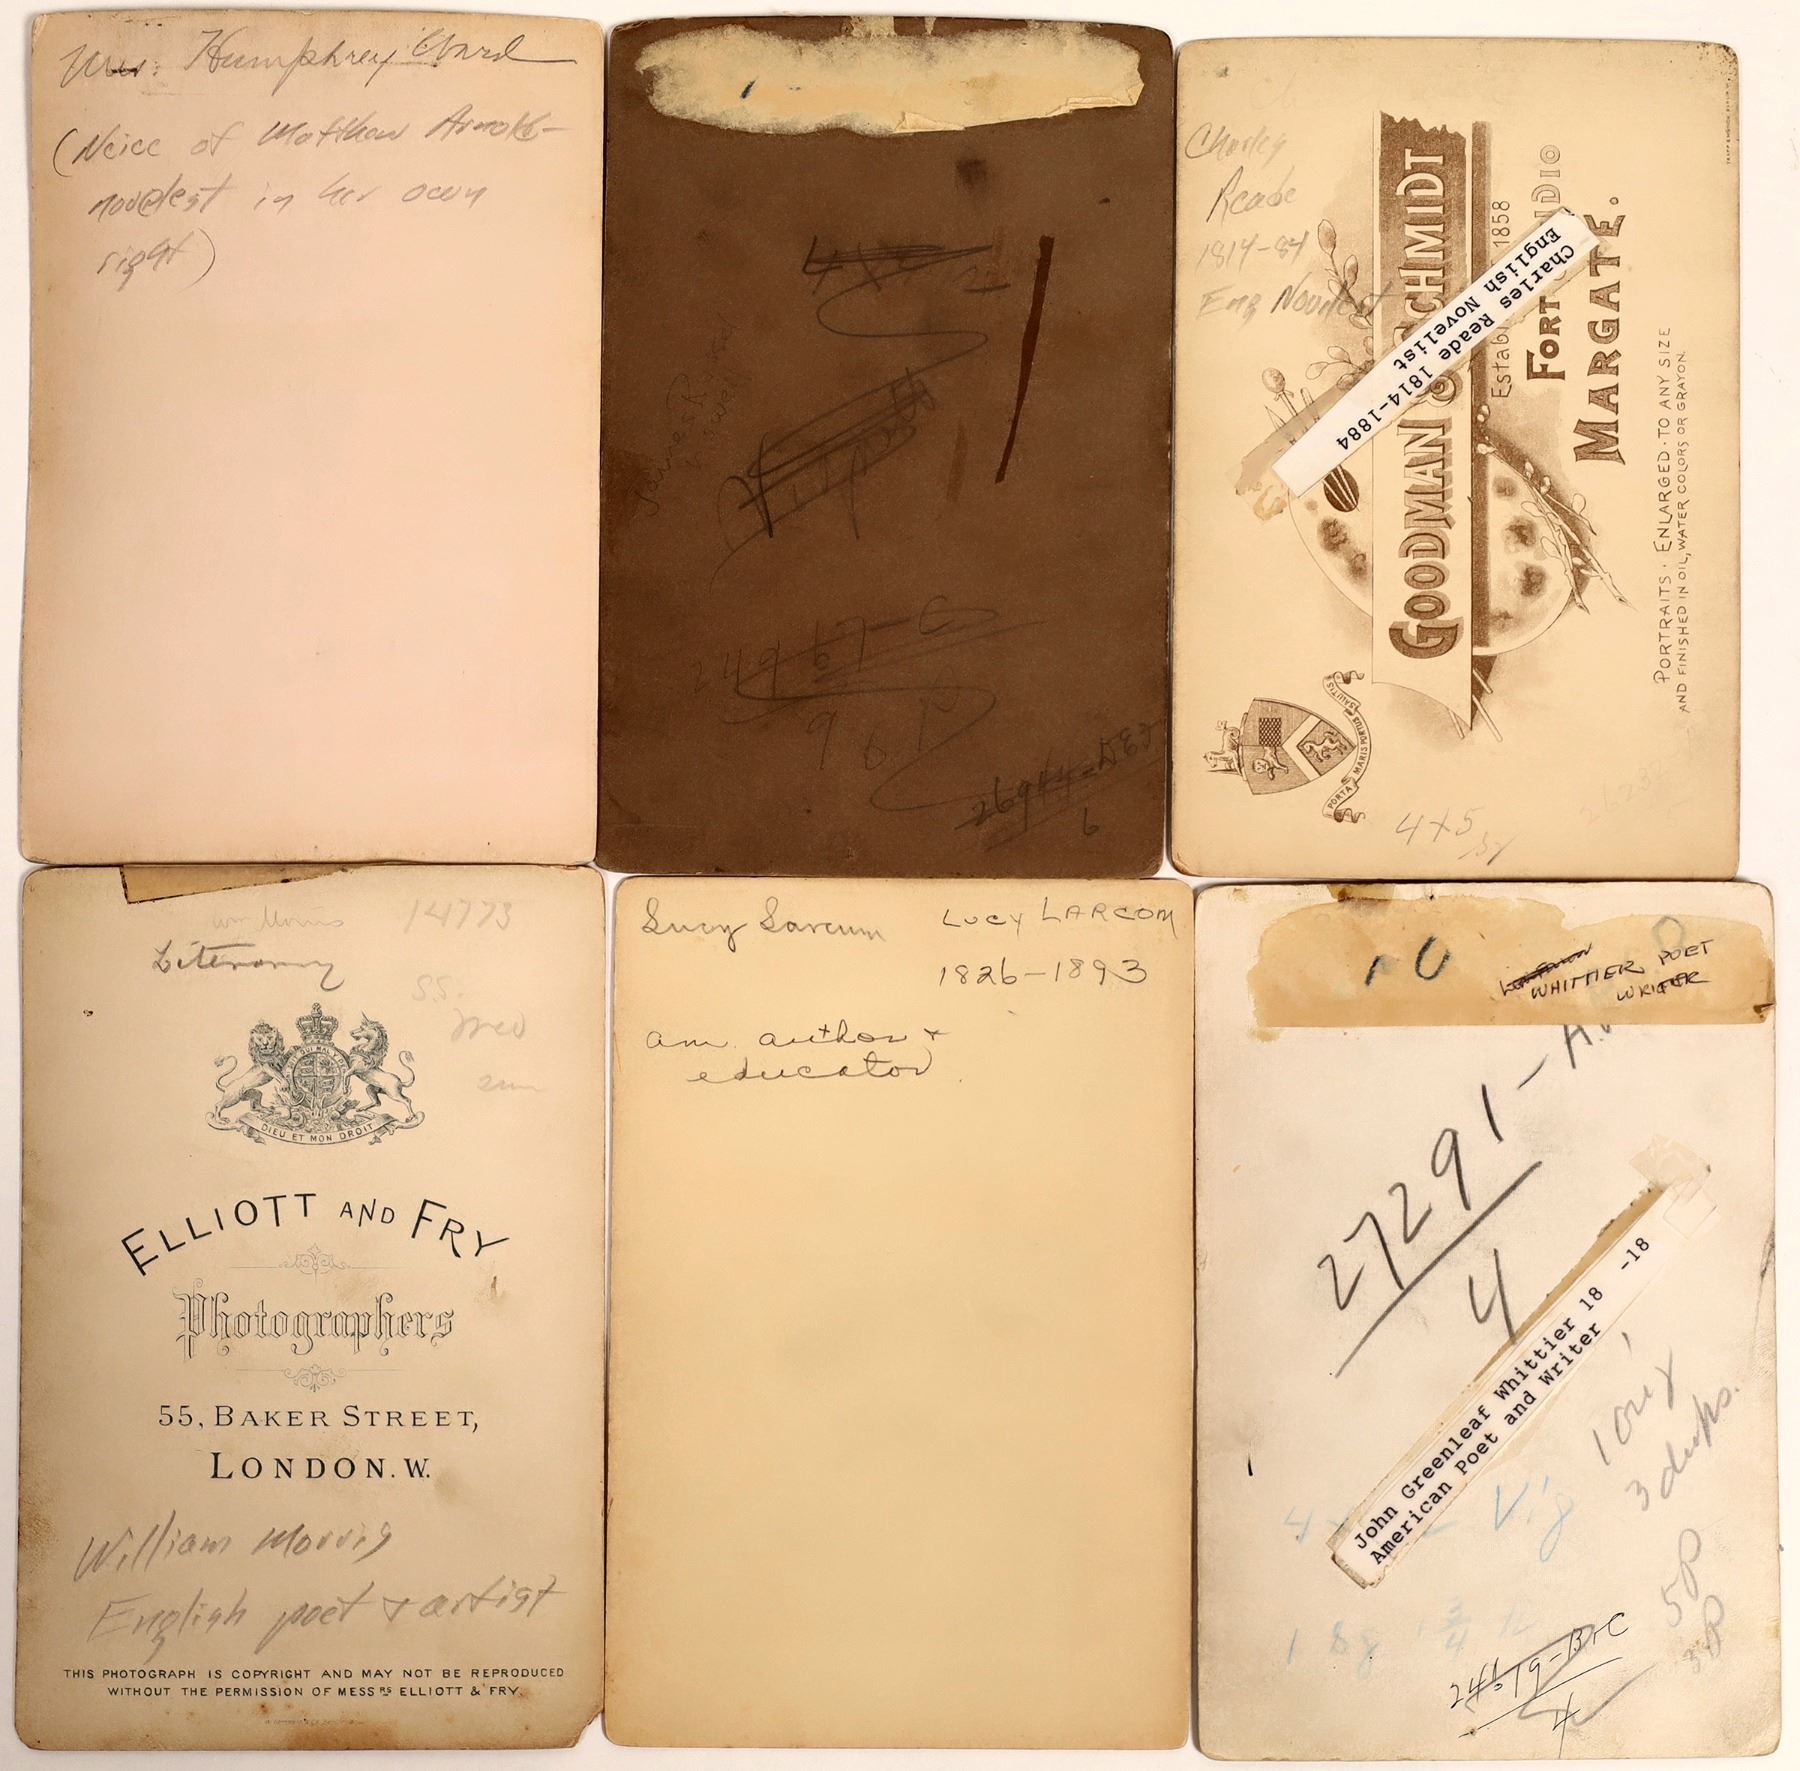 Mrs. Humphrey Ward
(Neice of Matthew Arnold-
novelest in her own
right)
James R
Lowell
24967-C
961
26944-
6
Charles
Reade
1814-84
Eng Novelest
GOODMAN & SCHMIDT
1858
FORT
MARGATE.
PORTRAITS · ENLARGED · TO ANY SIZE
AND FINISHED IN OIL, WATER COLORS OR CRAYON.
Charles Reade 1814-1884
English Novelist
PORTA MARIS PORTUS SALUTIS
4x5
Wm Morris
14773
Literary
DIEU ET MON DROIT
ELLIOTT AND FRY
Photographers
55, BAKER STREET,
LONDON. W.
William Morris
English poet & artist
THIS PHOTOGRAPH IS COPYRIGHT AND MAY NOT BE REPRODUCED
WITHOUT THE PERMISSION OF MESSRS ELLIOTT & FRY.
Lucy Larcum LUCY LARCOM
1826-1893
am. author +
educator
WHITTIER POET
WRITER
27291-A.
4
John Greenleaf Whittier 18 -18
American Poet and Writer
1 orig
3 dups.
Vig
5P
3P
4